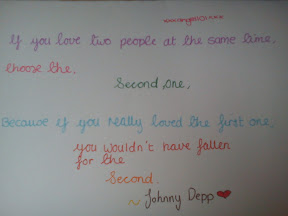 If you love two people at the same time,
choose the,
Second one,
Because if you Really loved the first one,
you wouldn't have fallen
for the
Second.
~ Johnny Depp